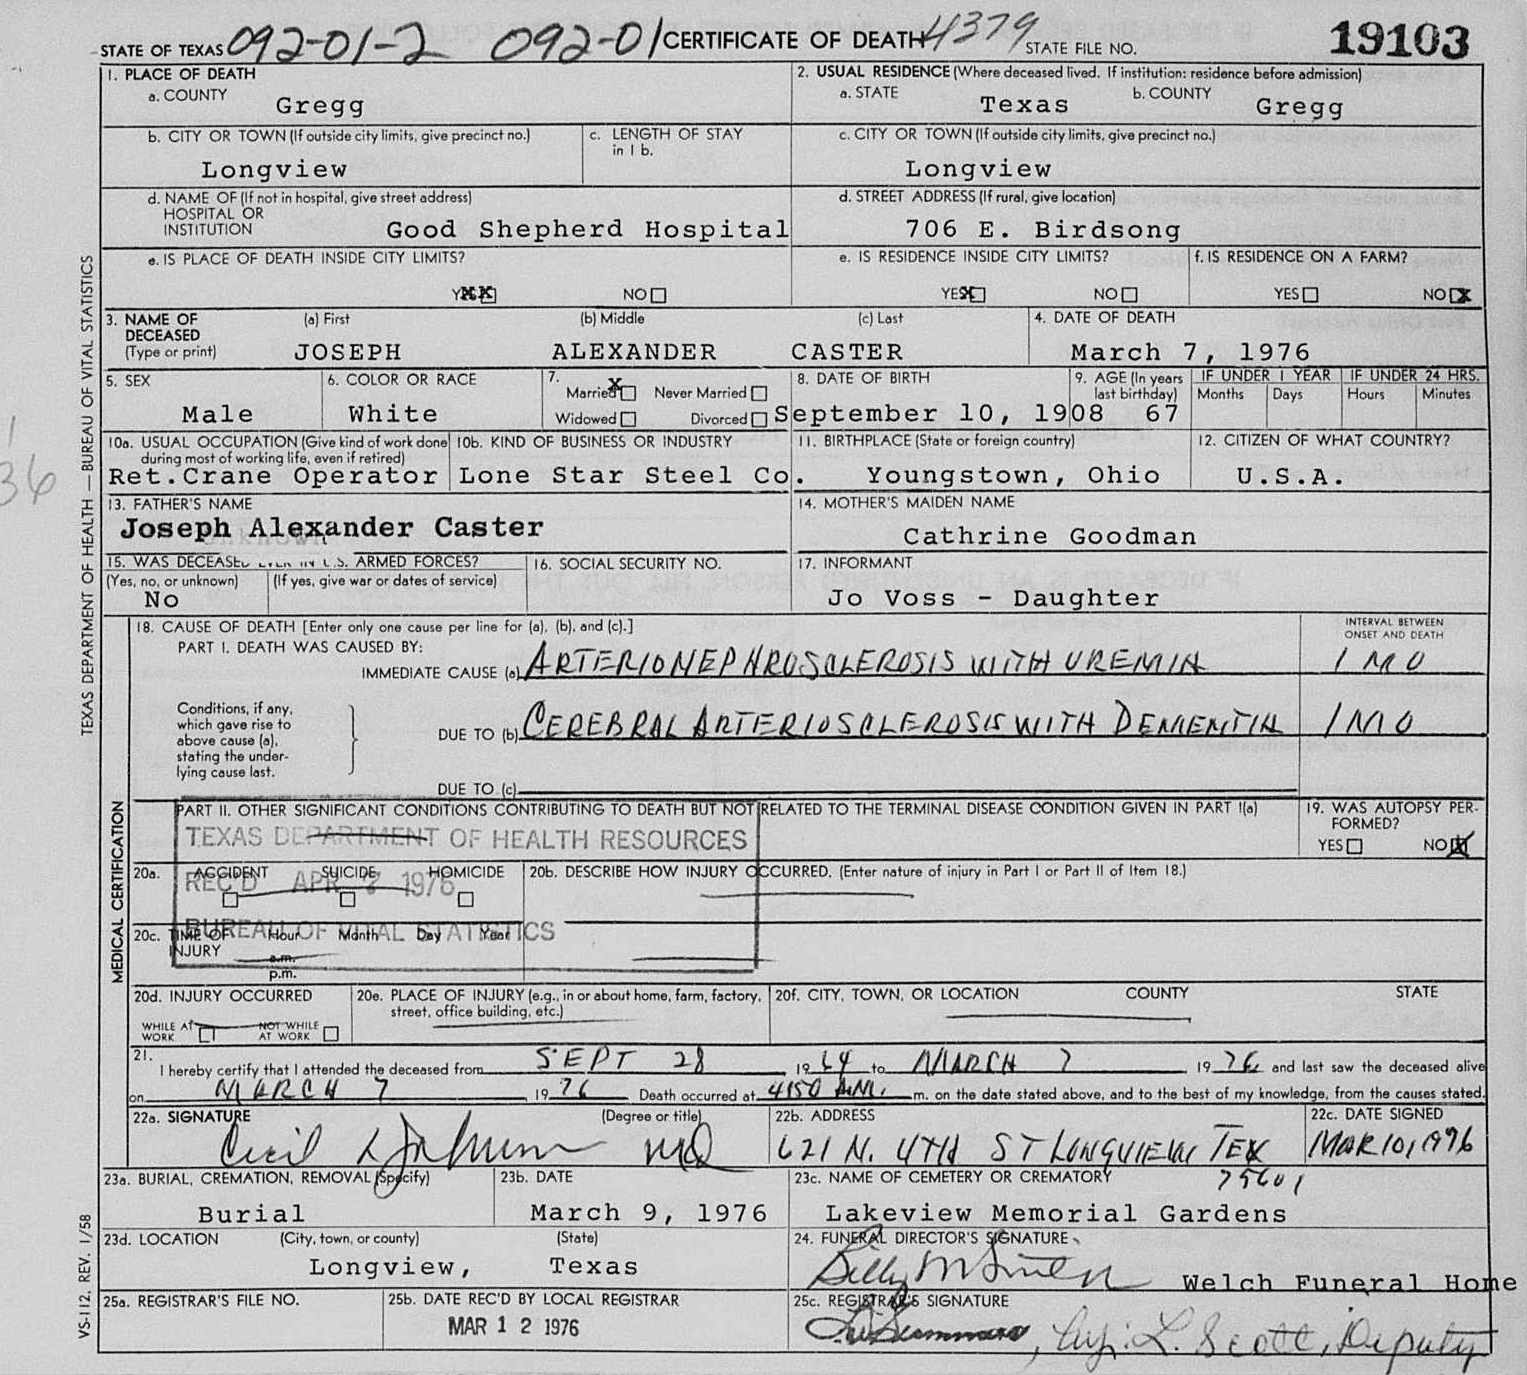 STATE OF TEXAS 092-01-2 092-01 CERTIFICATE OF DEATH 4379 STATE FILE NO. 19103
1. PLACE OF DEATH
a. COUNTY Gregg
2. USUAL RESIDENCE (Where deceased lived. If institution: residence before admission)
a. STATE Texas b. COUNTY Gregg
b. CITY OR TOWN (If outside city limits, give precinct no.) Longview
c. LENGTH OF STAY in 1 b.
c. CITY OR TOWN (If outside city limits, give precinct no.) Longview
d. NAME OF (If not in hospital, give street address)
HOSPITAL OR
INSTITUTION Good Shepherd Hospital
d. STREET ADDRESS (If rural, give location)
706 E. Birdsong
e. IS PLACE OF DEATH INSIDE CITY LIMITS?
YXX NO
e. IS RESIDENCE INSIDE CITY LIMITS?
YESX NO
f. IS RESIDENCE ON A FARM?
YES NO X
3. NAME OF DECEASED (Type or print)
(a) First (b) Middle (c) Last
JOSEPH ALEXANDER CASTER
4. DATE OF DEATH
March 7, 1976
5. SEX
Male
6. COLOR OR RACE
White
7.
Married X Never Married
Widowed Divorced
8. DATE OF BIRTH
September 10, 1908
9. AGE (In years last birthday)
67
IF UNDER 1 YEAR
Months Days
IF UNDER 24 HRS.
Hours Minutes
10a. USUAL OCCUPATION (Give kind of work done during most of working life, even if retired)
Ret.Crane Operator
10b. KIND OF BUSINESS OR INDUSTRY
Lone Star Steel Co.
11. BIRTHPLACE (State or foreign country)
Youngstown, Ohio
12. CITIZEN OF WHAT COUNTRY?
U.S.A.
13. FATHER'S NAME
Joseph Alexander Caster
14. MOTHER'S MAIDEN NAME
Cathrine Goodman
15. WAS DECEASED EVER IN U.S. ARMED FORCES?
(Yes, no, or unknown) (If yes, give war or dates of service)
No
16. SOCIAL SECURITY NO.
17. INFORMANT
Jo Voss - Daughter
18. CAUSE OF DEATH [Enter only one cause per line for (a), (b), and (c).]
INTERVAL BETWEEN ONSET AND DEATH
PART I. DEATH WAS CAUSED BY:
IMMEDIATE CAUSE (a) ARTERIONEPHROSCLEROSIS WITH UREMIA 1 MO
Conditions, if any,
which gave rise to
above cause (a),
stating the under-
lying cause last.
DUE TO (b) CEREBRAL ARTERIOSCLEROSIS WITH DEMENTIA 1 MO
DUE TO (c)
PART II. OTHER SIGNIFICANT CONDITIONS CONTRIBUTING TO DEATH BUT NOT RELATED TO THE TERMINAL DISEASE CONDITION GIVEN IN PART I(a)
19. WAS AUTOPSY PER-
FORMED?
YES NO X
TEXAS DEPARTMENT OF HEALTH RESOURCES
REC'D APR 2 1976
BUREAU OF VITAL STATISTICS
20a. ACCIDENT SUICIDE HOMICIDE
20b. DESCRIBE HOW INJURY OCCURRED. (Enter nature of injury in Part I or Part II of Item 18.)
20c. TIME OF INJURY Hour Month Day Year
a.m.
p.m.
20d. INJURY OCCURRED
WHILE AT WORK NOT WHILE AT WORK
20e. PLACE OF INJURY (e.g., in or about home, farm, factory, street, office building, etc.)
20f. CITY, TOWN, OR LOCATION COUNTY STATE
21.
I hereby certify that I attended the deceased from SEPT 28 1964 to MARCH 7 1976 and last saw the deceased alive
on MARCH 7 1976 Death occurred at 4:50 A.M. m. on the date stated above, and to the best of my knowledge, from the causes stated.
22a. SIGNATURE (Degree or title)
Cecil MD
22b. ADDRESS
621 N. 4TH ST LONGVIEW, TEX
75601
22c. DATE SIGNED
MAR 10, 1976
23a. BURIAL, CREMATION, REMOVAL (Specify)
Burial
23b. DATE
March 9, 1976
23c. NAME OF CEMETERY OR CREMATORY
Lakeview Memorial Gardens
23d. LOCATION (City, town, or county) (State)
Longview, Texas
24. FUNERAL DIRECTOR'S SIGNATURE
Billy Welch Funeral Home
25a. REGISTRAR'S FILE NO.
25b. DATE REC'D BY LOCAL REGISTRAR
MAR 12 1976
25c. REGISTRAR'S SIGNATURE
L. Scott, Deputy
TEXAS DEPARTMENT OF HEALTH — BUREAU OF VITAL STATISTICS
MEDICAL CERTIFICATION
VS-112, REV. 1/58
36